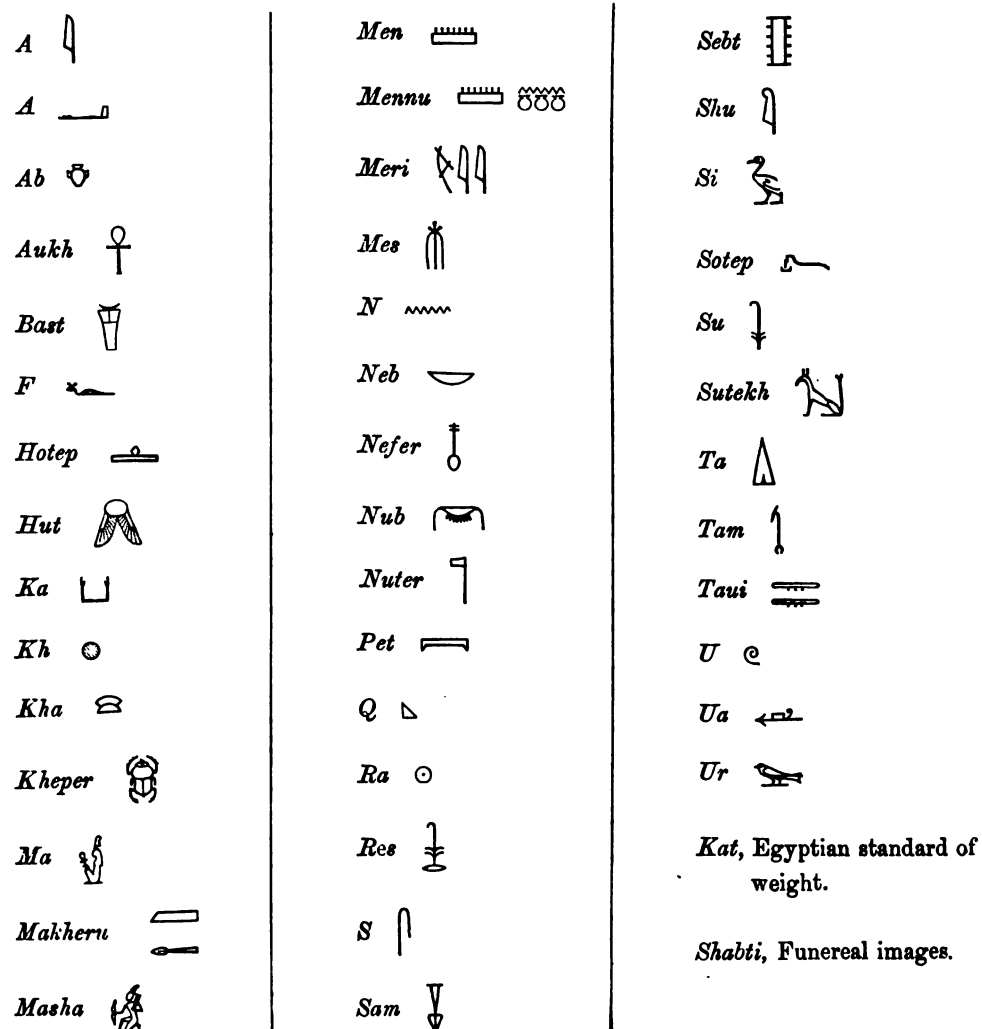 A
A
Ab
Aukh
Bast
F
Hotep
Hut
Ka
Kh
Kha
Kheper
Ma
Makheru
Masha
Men
Mennu
Meri
Mes
N
Neb
Nefer
Nub
Nuter
Pet
Q
Ra
Res
S
Sam
Sebt
Shu
Si
Sotep
Su
Sutekh
Ta
Tam
Taui
U
Ua
Ur
Kat, Egyptian standard of
weight.
Shabti, Funereal images.